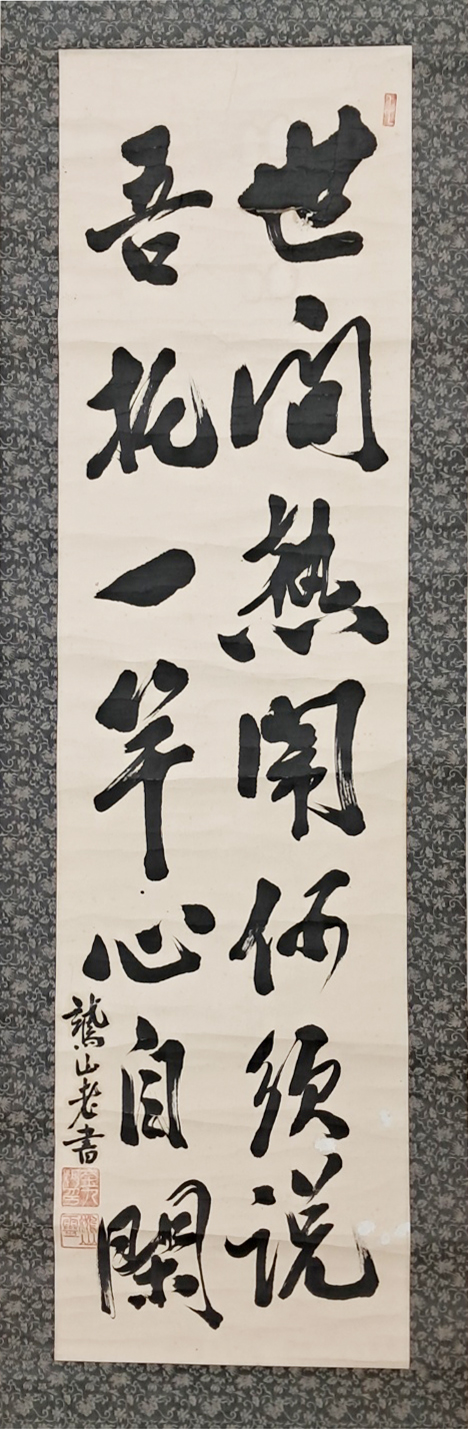 世間熱鬧何須説
吾托一竿心自閑
山老書